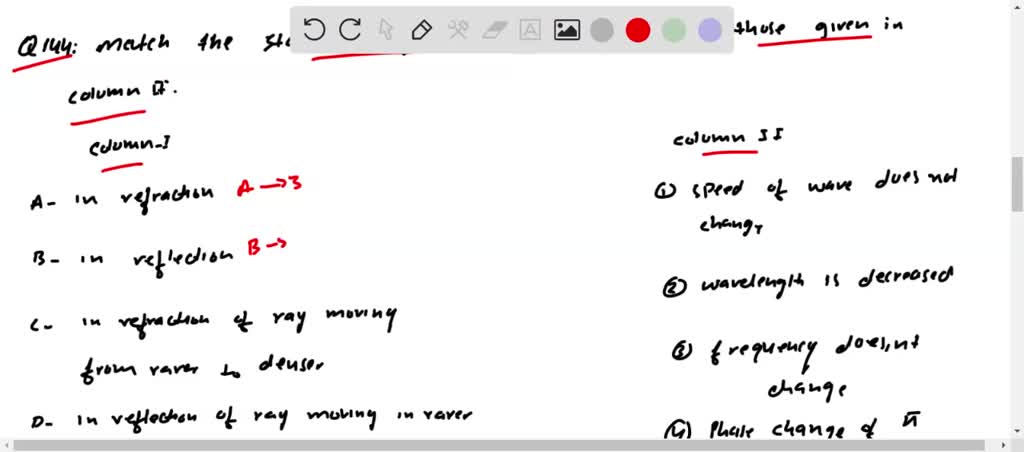 Q144: match the sta those given in
column II.
column-I
column II
A- in refraction A→3
① speed of wave does not
change,
B- in reflection B→
② wavelength is decreased
C- in refraction of ray moving
from rarer to denser
③ frequency does,nt
change
D- in reflection of ray moving in rarer
④ Phase change of π